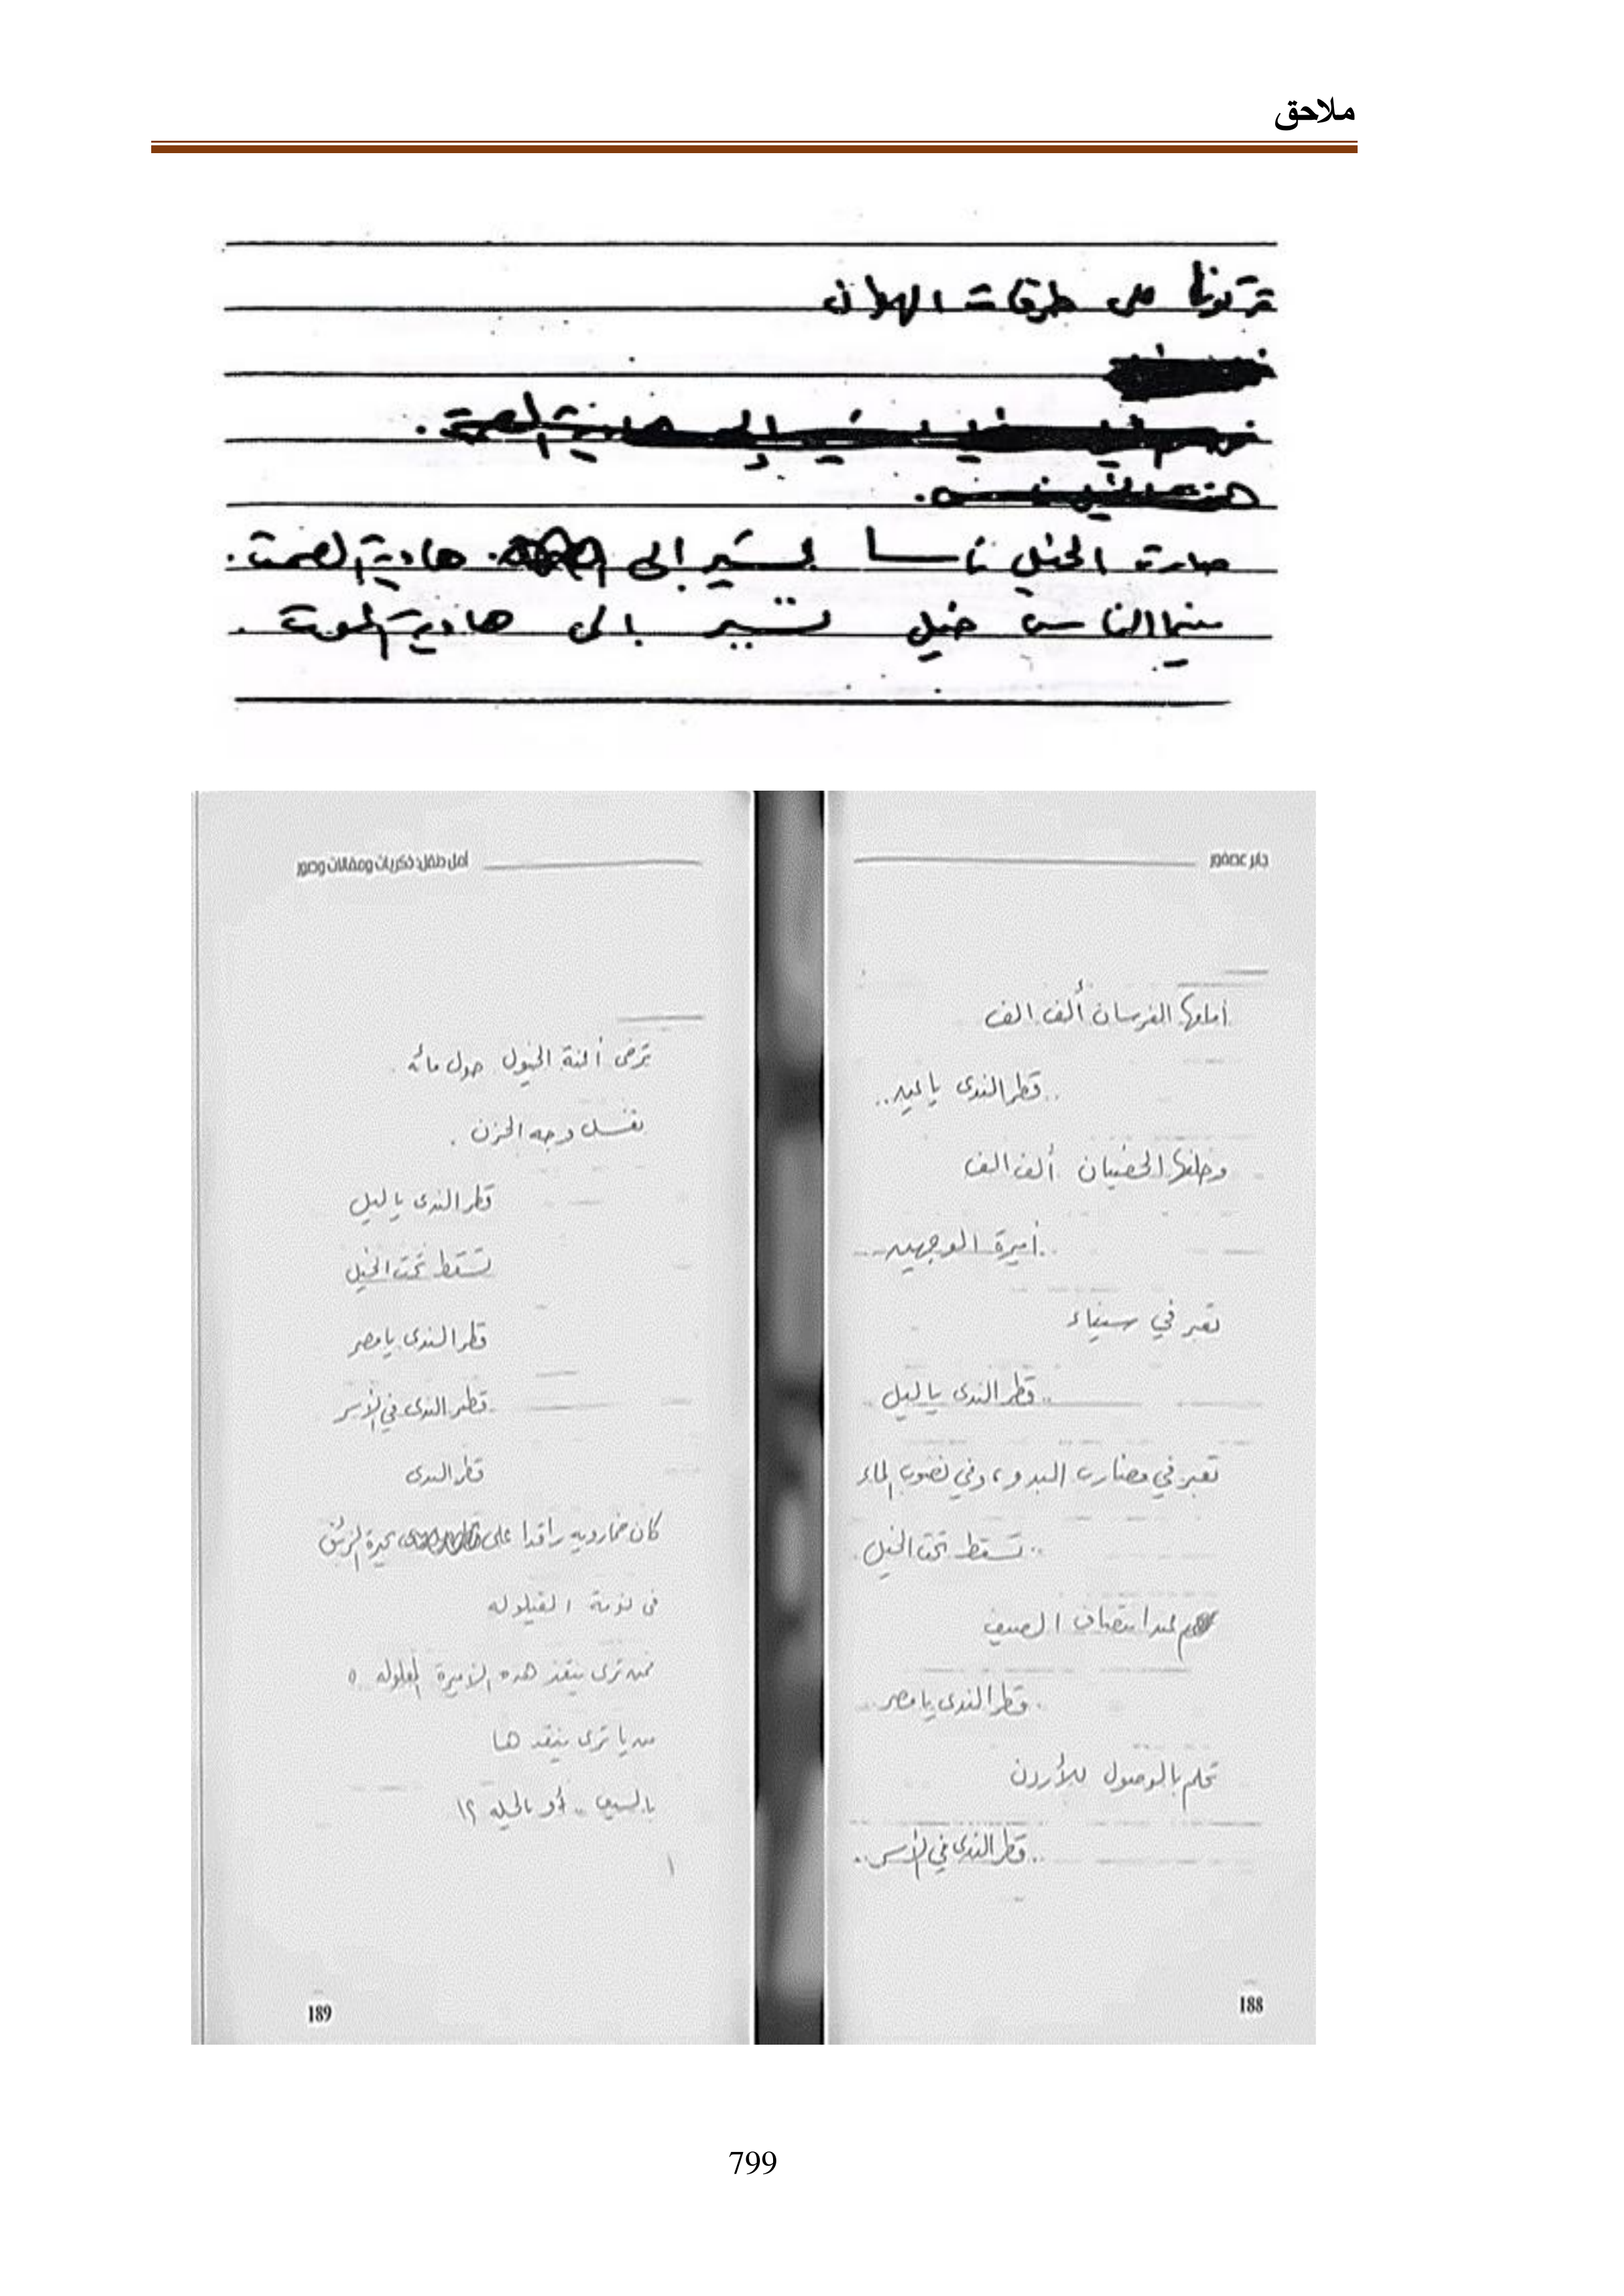 ملاحق
تركوها على طرقات الهوان
صارت الخيل ناسا تسير إلى هاوية الصمت.
بينما الناس خيل تسير إلى هاوية الموت.
جابر عصفور
أمامها الفرسان ألف ألف
..قطر الندى يا عين..
وخلفها الخصيان ألف ألف
..أميرة الوجهين..
تعبر في سيناء
..قطر الندى يا ليل..
تعبر في مضارب البدو، وفي نضوب الماء
..تسقط تحت الخيل.
عند انتصاف الصيف
..قطر الندى يا مصر..
تحلم بالوصول للأردن
..قطر الندى في الأسر..
188
أمل دنقل: ذكريات ومقالات وصور
ترخى أعنة الخيول حول مائه.
تغسل وجه الحزن.
قطر الندى يا ليل
تسقط تحت الخيل
قطر الندى يا مصر
قطر الندى في الأسر
قطر الندى
كان خمارويه راقدا على بحيرة الزئبق
في نومة القيلوله
فمن ترى ينقذ هذه الأميرة المغلوله
من يا ترى ينقذها
بالسيف.. أو بالحيله ؟!
189
799